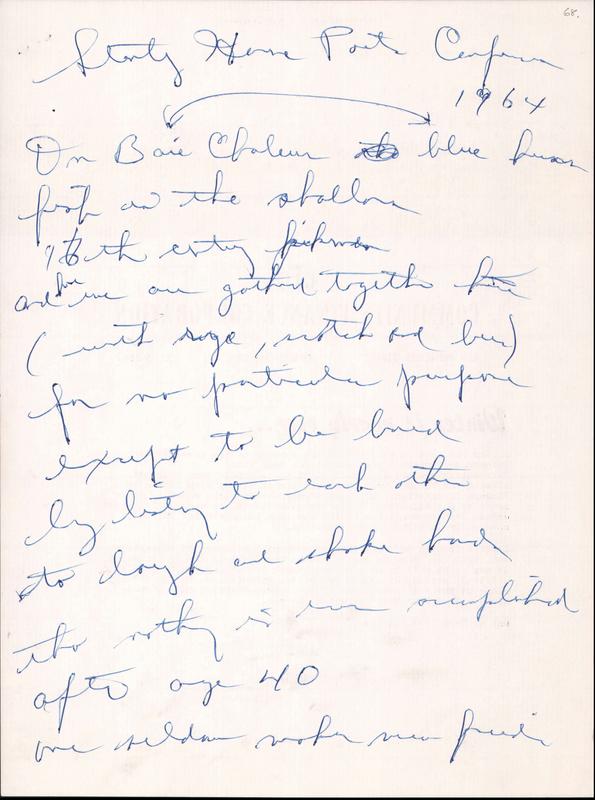 68.
Stanley House Poets Conference
1964
On Baie Chaleur blue human
fish in the shallows
16th century fishermen
and here we are gathered together here
( with rye, scotch and beer)
for no particular purpose
except to be bored
by listening to each other
to laugh and shake hands
tho nothing is ever accomplished
after age 40
one seldom makes new friends